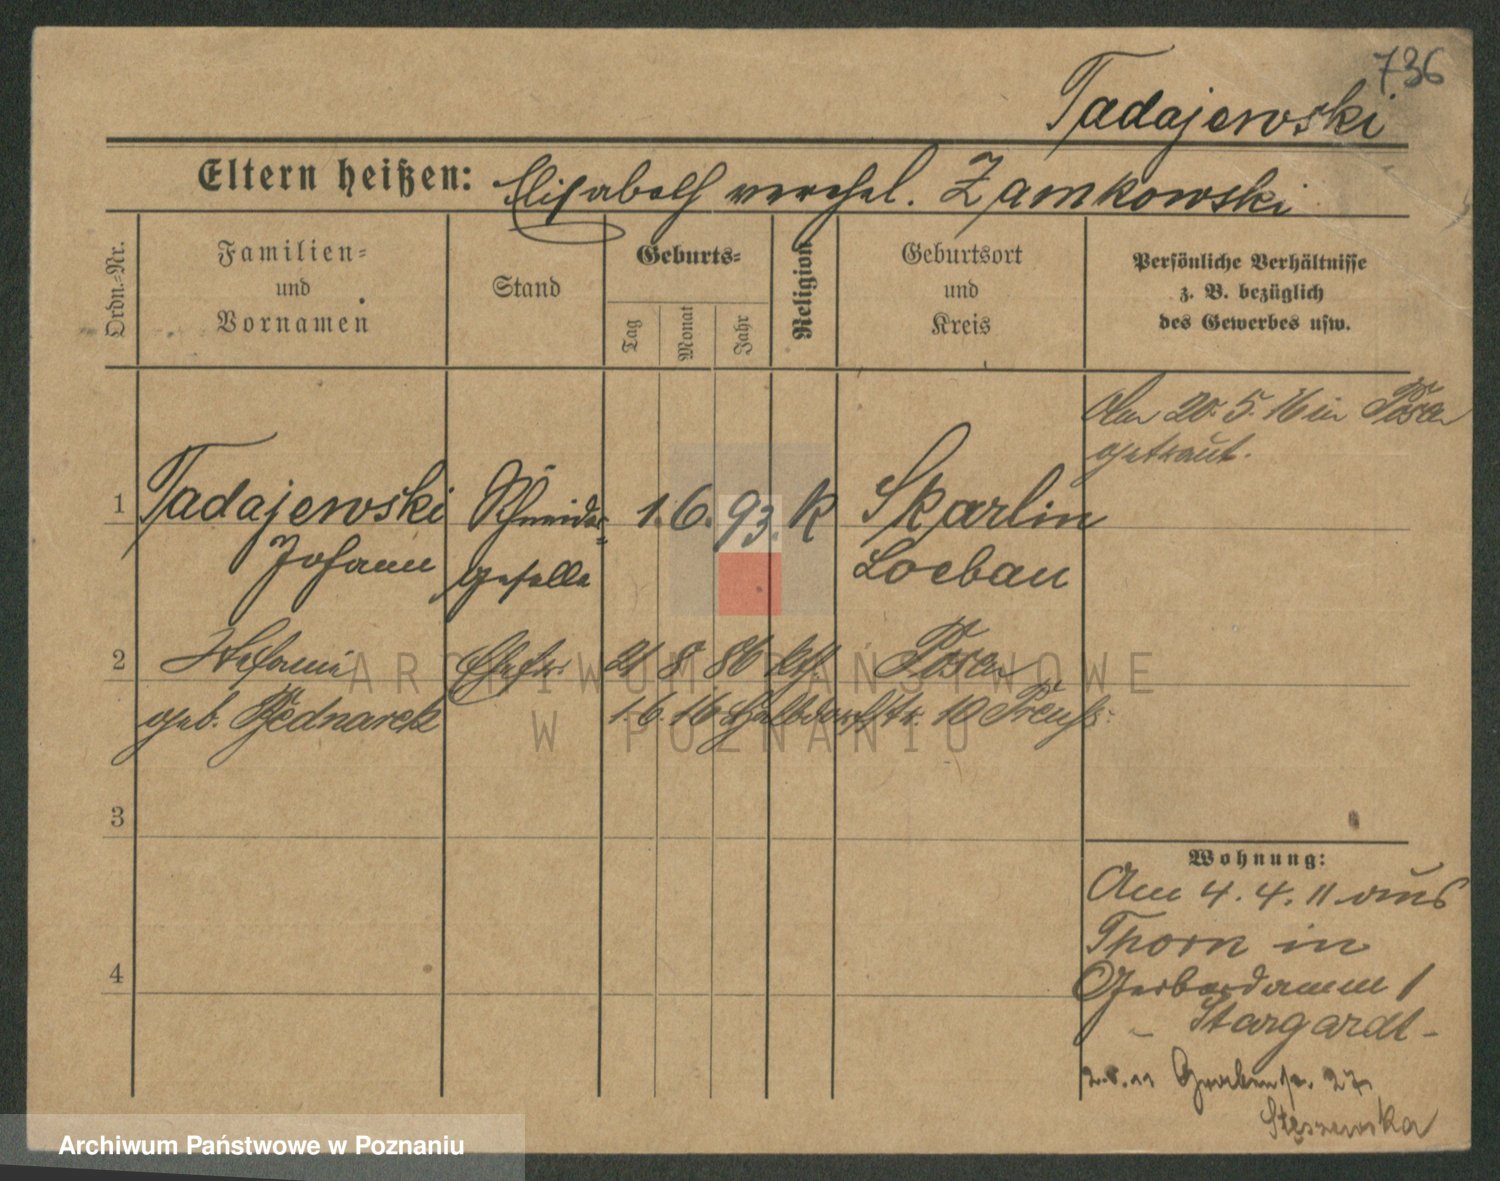 736
Tadajewski
Eltern heißen: Elisabeth verehel. Zamkowski
Ordn.-Nr.
Familien- und Vornamen
Stand
Geburts-
Tag
Monat
Jahr
Religion
Geburtsort und Kreis
Persönliche Verhältnisse z. B. bezüglich des Gewerbes usw.
Am 20. 5. 16 in Posen
getraut.
1 Tadajewski Schneider= 1. 6. 93. k Skarlin
Johann geselle Loebau
2 Stefania Ehefr. 21 8 86 kth Posen
geb. Bednarek 1. 6. 16 Halbdorfstr. 10
3
4
Wohnung:
Am 4. 4. 11 aus
Thorn in
Gerberdamm 1
- Stargardt -
2.8.11 Grabenstr. 27
Stęszewska
ARCHIWUM PAŃSTWOWE
W POZNANIU
Archiwum Państwowe w Poznaniu